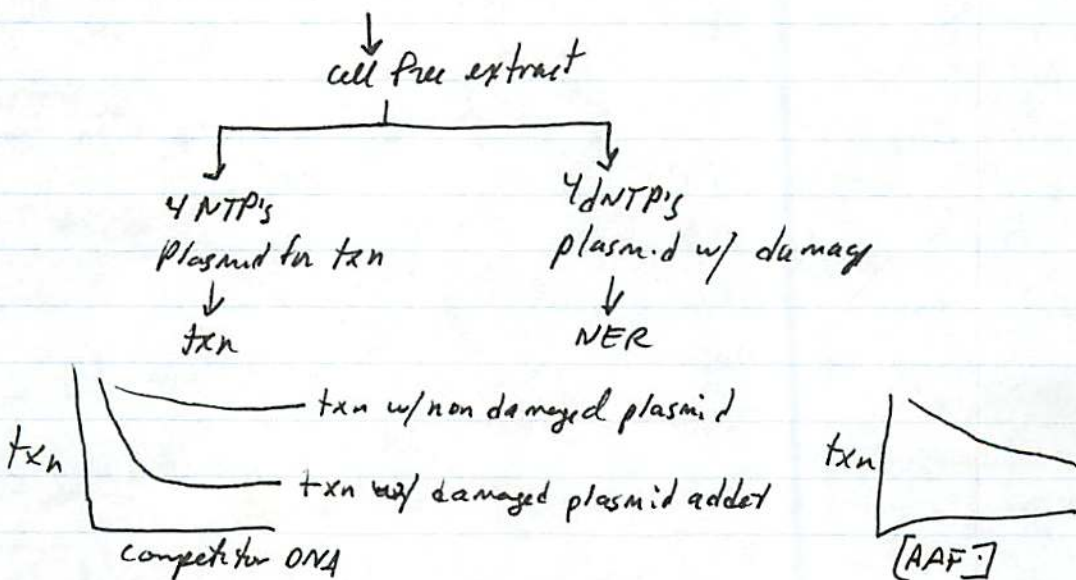 cell free extract
4 NTP's
Plasmid for txn
txn
4 dNTP's
plasmid w/ damage
NER
txn
txn w/ non damaged plasmid
txn w/ damaged plasmid added
competitor DNA
txn
[AAF]